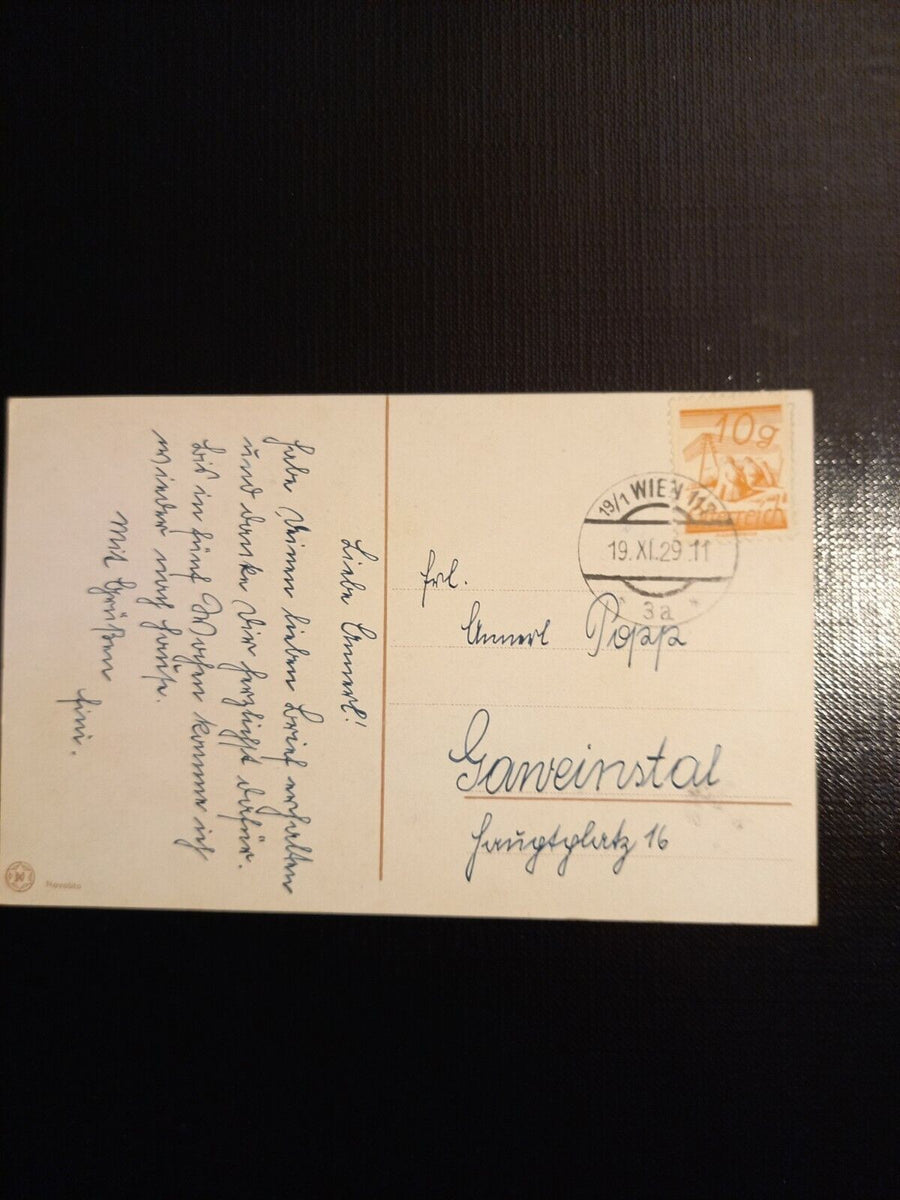 Liebe Annerl!
Habe Deinen lieben Brief erhalten
und danke Dir herzlichst dafür.
Bis in fünf Wochen komme ich
wieder nach Hause.
Mit Grüßen
Fini.
Novolito
10g
Österreich
19/1 WIEN 110
19.XI.29 11
* 3a *
Frl.
Annerl Popp
Gaweinstal
Hauptplatz 16